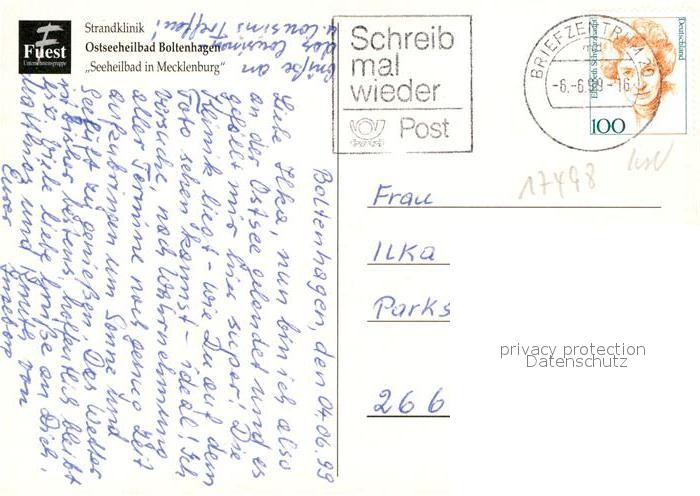 Fuest
Unternehmensgruppe
Strandklinik
Ostseeheilbad Boltenhagen
„Seeheilbad in Mecklenburg"
Schreib
mal
wieder
Post
BRIEFZENTRUM
-6.-6.99-16
Deutschland
100
17498
Boltenhagen, den 04.06.99
Liebe Ilka, nun bin ich also
an der Ostsee gelandet und es
gefällt mir hier super! Die
Klinik liegt - wie Du auf dem
Foto sehen kannst - ideal! Ich
versuche, nach Wahrnehmung
aller Termine noch genug Zeit
aufzubringen um Sonne und
Seeluft zu genießen. Das Wetter
ist bisher bestens, hoffentlich bleibt
es so. Viele liebe Grüße an Dich,
Mathias und von
Eurer Ingeborg
Grüße an
das Cousinen
u. Cousins Treffen!
Frau
Ilka
Parks
266
privacy protection
Datenschutz